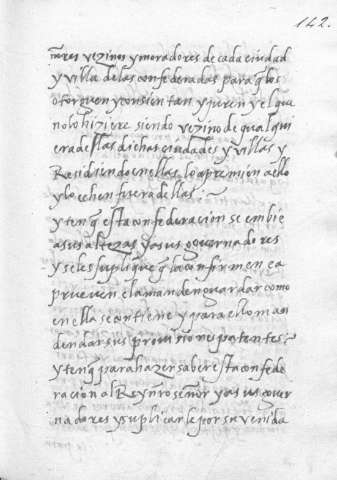 142.
nores vezinos y moradores de cada ciudad
y villa de las confederadas para q̃ los
otorguen y consientan y juren y el que
no lo hiziere siendo vezino de qualqui
era dellas dichas ciudades y villas y
Residiendo en ellas lo apremien a ello
y lo echen fuera dellas :~
y ten q̃ esta confederacion se embie
a sus altezas y a sus governadores
y se les suplique q̃ la confirmen ea
prueven e la manden guardar como
en ella se contiene y para ello man
den dar sus provisiones patentes :~
y ten q̃ para hazer saber esta confede
racion al Rey nro señor y a sus gover
nadores y suplicarle por su venida